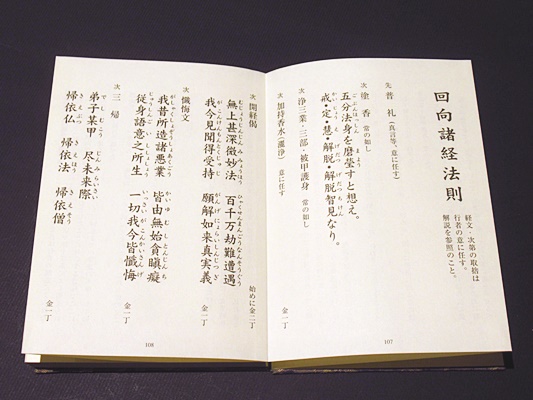 回向諸経法則
経文・次第の取捨は
行者の意に任す。
解説を参照のこと。
先 普 礼(真言等、意に任す)
次 塗 香 常の如し
五分法身を磨瑩すと想え。
戒・定・慧・解脱・解脱智見なり。
次 浄三業・三部・被甲護身 常の如し
次 加持香水(灑浄) 意に任す
107
次 開経偈 始めに金二丁
無上甚深微妙法 百千万劫難遭遇
我今見聞得受持 願解如来真実義 金一丁
次 懺悔文
我昔所造諸悪業 皆由無始貪瞋癡
従身語意之所生 一切我今皆懺悔 金一丁
次 三 帰
弟子某甲 尽未来際
帰依仏 帰依法 帰依僧 金一丁
108